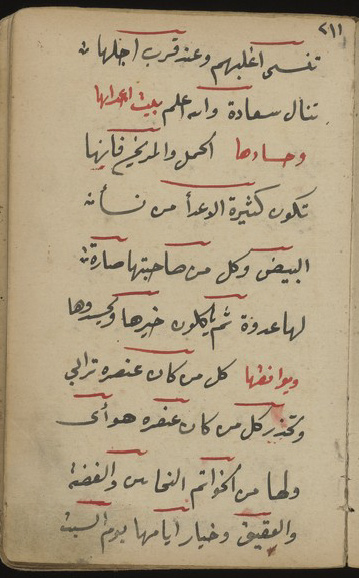 ٢١١
تنسى اغلبهم وعند قرب اجلها
تنال سعادة والله اعلم بيت اعدائها
وحسادها الحمل والمريخ فانها
تكون كثيرة الاعدا من نسائه
البيض وكل من صاحبتها صارة
لها عدوة ثم ياكلون خيرها ويحسدوها
ويوافقها كل من كان عنصره ترابي
وتحذر كل من كان عنصره هوائى
ولها من الخواتم النحاس والفضة
والعقيق وخيار ايامها يوم السبت